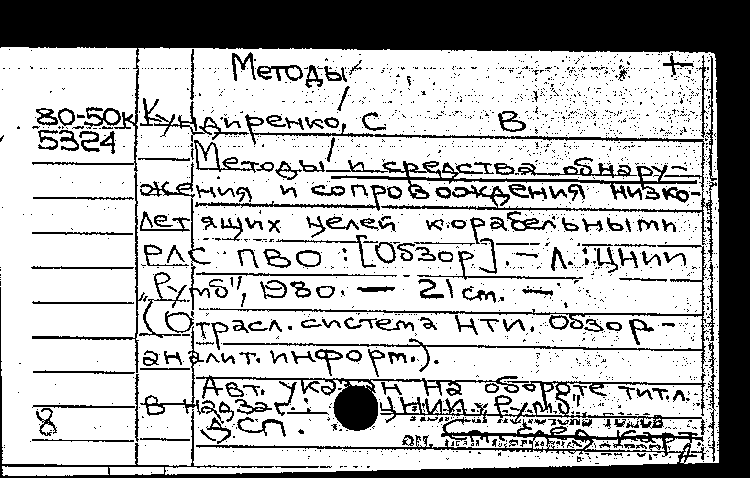 Методы
80-50к Кундиренко, С В
5324
Методы и средства обнару-
жения и сопровождения низко-
летящих целей корабельными
РЛС ПВО : [Обзор]. — Л. : ЦНИИ
„Румб", 1980. — 21 см. —
(Отрасл. система НТИ. Обзор.-
аналит. информ.).
Авт. указан на обороте тит.л.
В надзаг.: ЦНИИ „Румб"
8 ДСП.
См. след. карт.